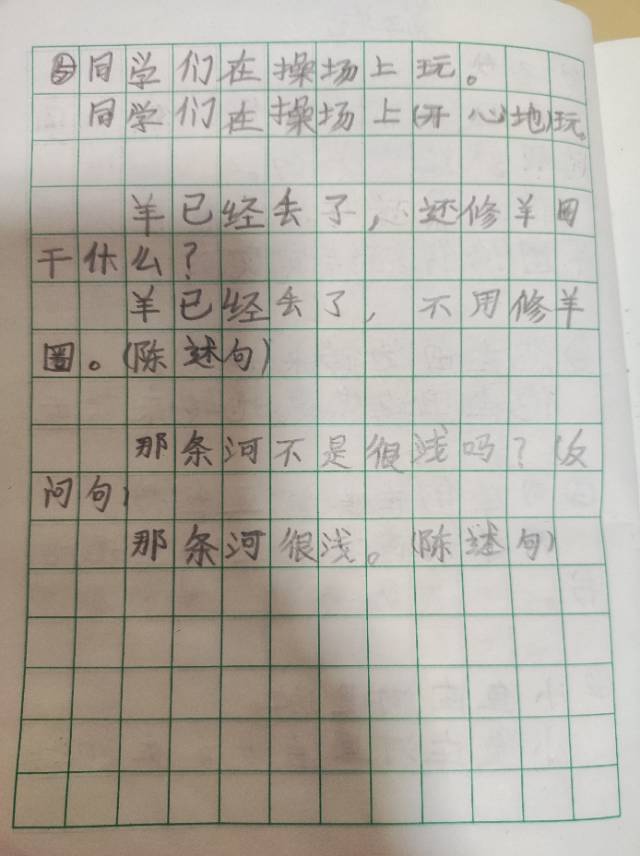 ⑤同学们在操场上玩。
同学们在操场上(开心地)玩。
羊已经丢了,还修羊回
干什么?
羊已经丢了,不用修羊
圈。(陈述句)
那条河不是很浅吗?(反
问句)
那条河很浅。(陈述句)